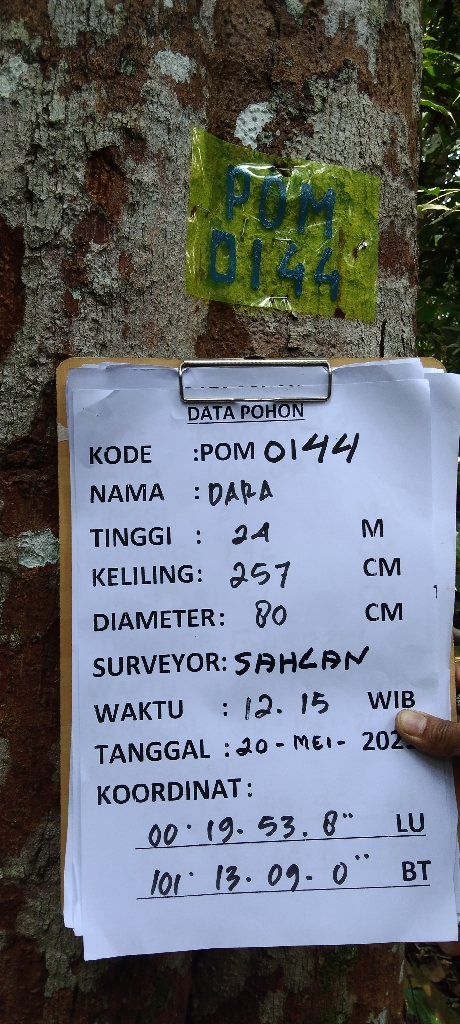 POM
0144
DATA POHON
KODE :POM 0144
NAMA : DARA
TINGGI : 24 M
KELILING: 257 CM
DIAMETER: 80 CM
SURVEYOR: SAHLAN
WAKTU : 12.15 WIB
TANGGAL : 20-MEI-
KOORDINAT:
00° 19. 53. 8" LU
101° 13. 09. 0" BT